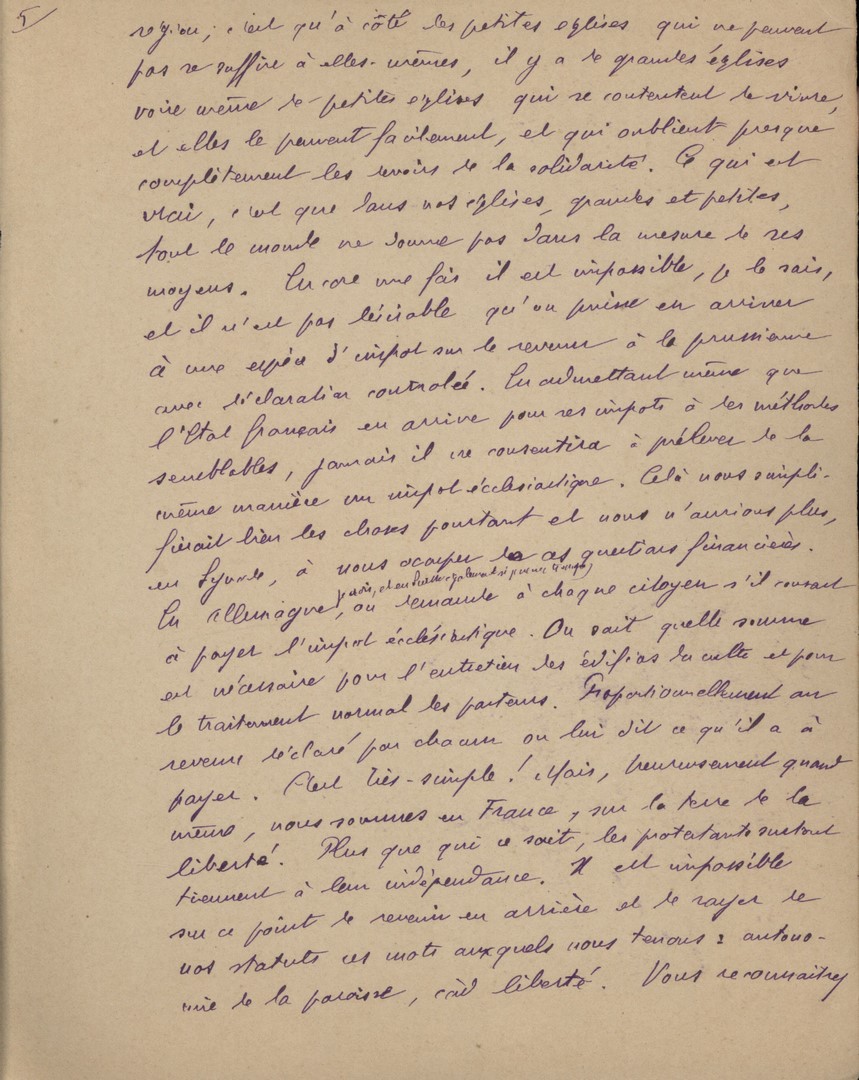 5/
région; c'est qu'à côté des petites églises qui ne peuvent
pas se suffire à elles-mêmes, il y a de grandes églises
voire même de petites églises qui se contentent de vivre,
et elles le peuvent facilement, et qui oublient presque
complètement les devoirs de la solidarité. Ce qui est
vrai, c'est que dans nos églises, grandes et petites,
tout le monde ne donne pas dans la mesure de ses
moyens. Encore une fois il est impossible, je le sais,
et il n'est pas désirable qu'on puisse en arriver
à une espèce d'impot sur le revenu à la prussienne
avec déclaration controlée. En admettant même que
l'Etat français en arrive pour ses impots à des méthodes
semblables, jamais il ne consentira à prélever de la
même manière un impot écclésiastique. Celà nous simpli-
fierait bien les choses pourtant et nous n'aurions plus,
en Synode, à nous occuper de ces questions financières.
En Allemagne, on demande à chaque citoyen s'il consent
à payer l'impot écclésiastique. On sait quelle somme
est nécessaire pour l'entretien des édifices du culte et pour
le traitement normal des pasteurs. Proportionnellement au
revenu déclaré par chacun on lui dit ce qu'il a à
payer. C'est très-simple! Mais, heureusement quand
même, nous sommes en France, sur la terre de la
liberté. Plus que qui ce soit, les protestants surtout
tiennent à leur indépendance. Il est impossible
sur ce point de revenir en arrière et de rayer de
nos statuts ces mots auxquels nous tenons: autono-
mie de la paroisse, càd liberté. Vous reconnaitrez